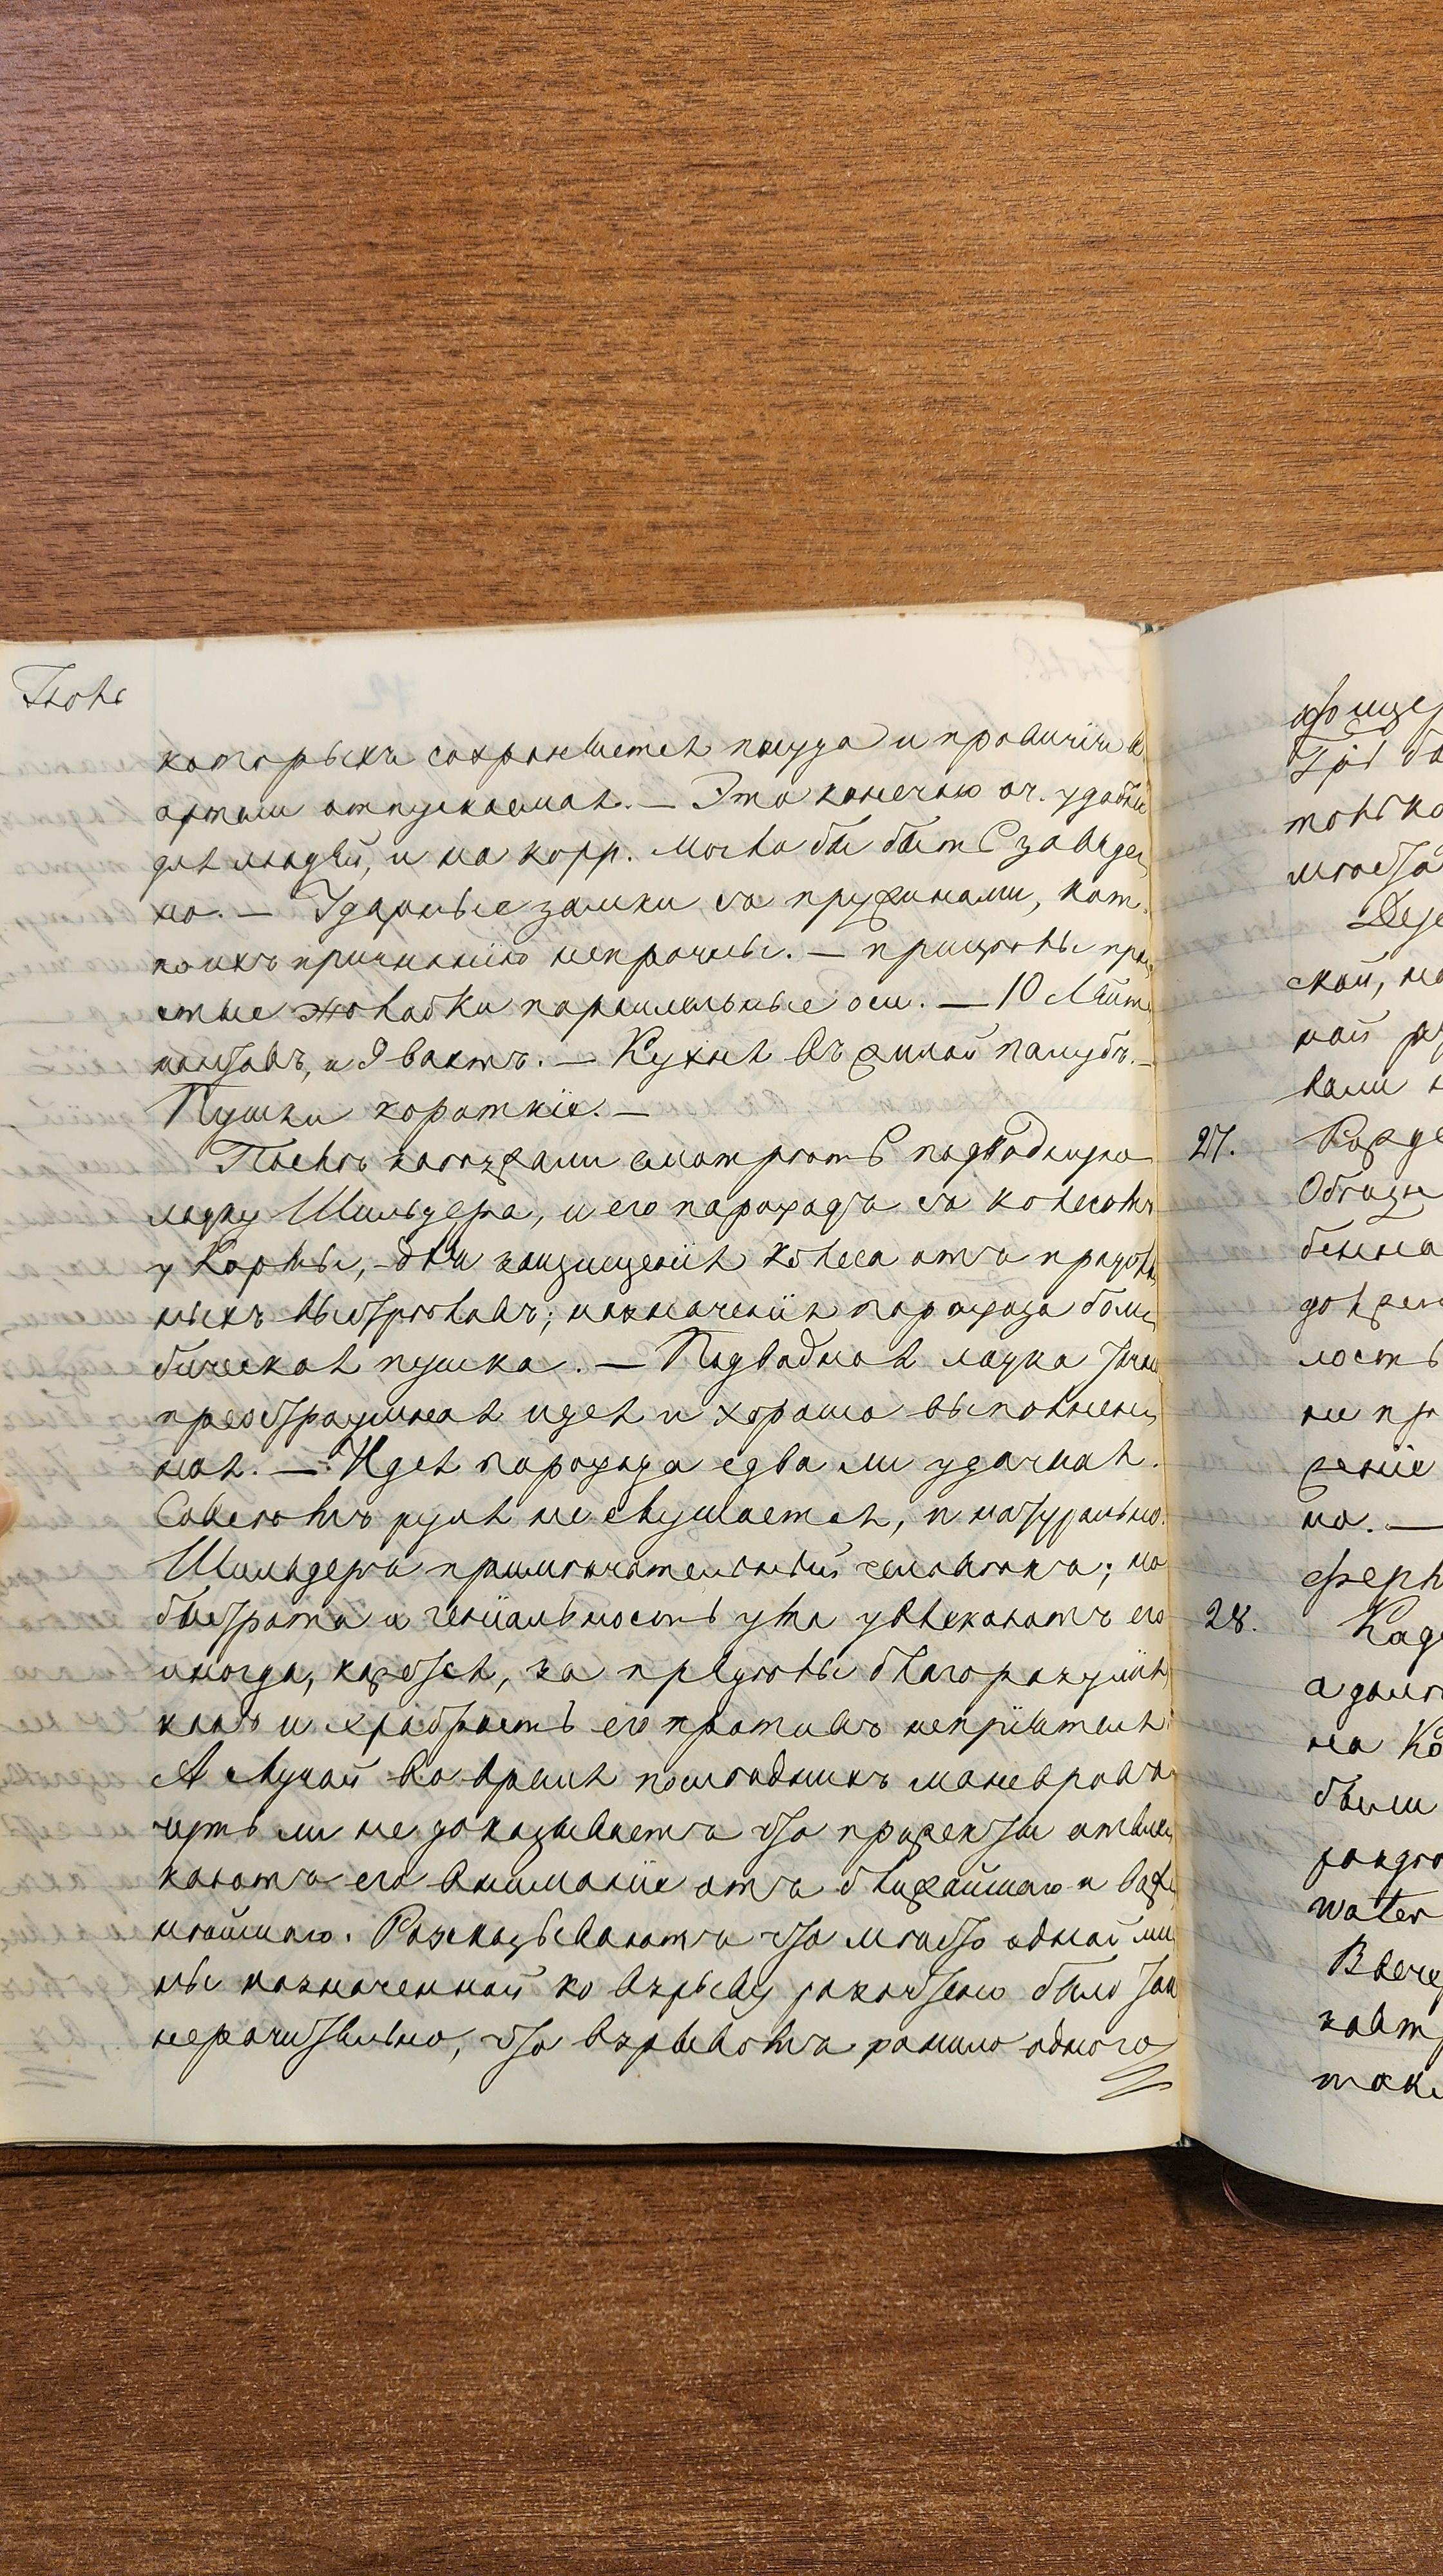 Іюль
которыхъ сохраняется посуда и провизія в
артели отпускаемая. — Это конечно оч. удобно
для людей, и на корр. могло бы быть заведе,
но. — Ударные замки со пружинами, кот.
по ихъ причинѣ непрочны. — прицѣлы про,
стые жолобки параллельные оси. — 10 Лейте,
нантовъ, и 9 вахтъ. — Кухня въ жилой палубѣ. —
Пушки короткіе. —
Послѣ смотрѣть подводную
лодку Шильдера, и его пароходъ со колесомъ
у Кормы, для защищенія колеса отъ продоль,
ныхъ выстрѣловъ; назначенія парохода бом,
бическая пушка. — Подводная лодка
преостроумная идея и хорошо выполнен,
ная. — Идея парохода едва ли удачная.
Совсѣмъ руля не слушается, и натурально.
Шильдеръ примѣчательный человѣкъ; но
быстрота и геніальность ума увлекаютъ его
иногда, кажется, за предѣлы благоразумія,
какъ и храбрость его противъ непріятеля.
А случай во время послѣднихъ маневровъ
чуть ли не доказываетъ что прожекты отвле,
каютъ его вниманіе отъ ближайшаго и важ,
нѣйшаго. Разсказываютъ что мѣсто одной ми,
ны назначенной ко взрыву было
нерачительно, что взрывомъ ранило одного
27.
28.
тонько
мѣсто
ской, на
ной
вами
лость
на. —
Каде
на
были
water
Ввече